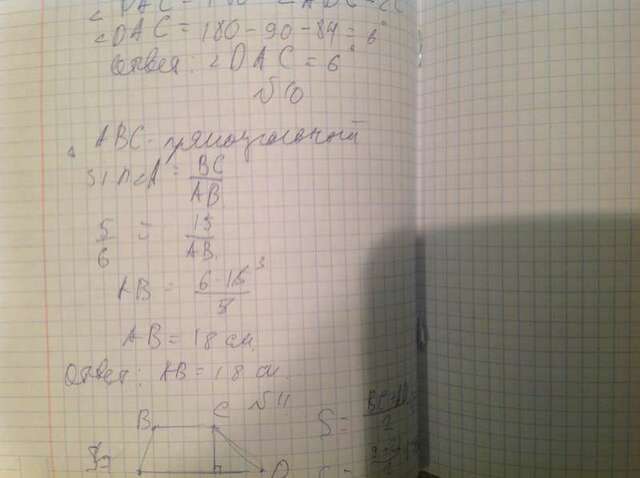 ∠DAC = 180 - ∠ADC - ∠C
∠DAC = 180 - 90 - 84 = 6°
Ответ: ∠DAC = 6°
№10
△ ABC - прямоугольный
sin∠A = BC/AB
5/6 = 15/AB
AB = 6·15/5 3
AB = 18 см.
Ответ: AB = 18 см.
№11
B C
S =
2